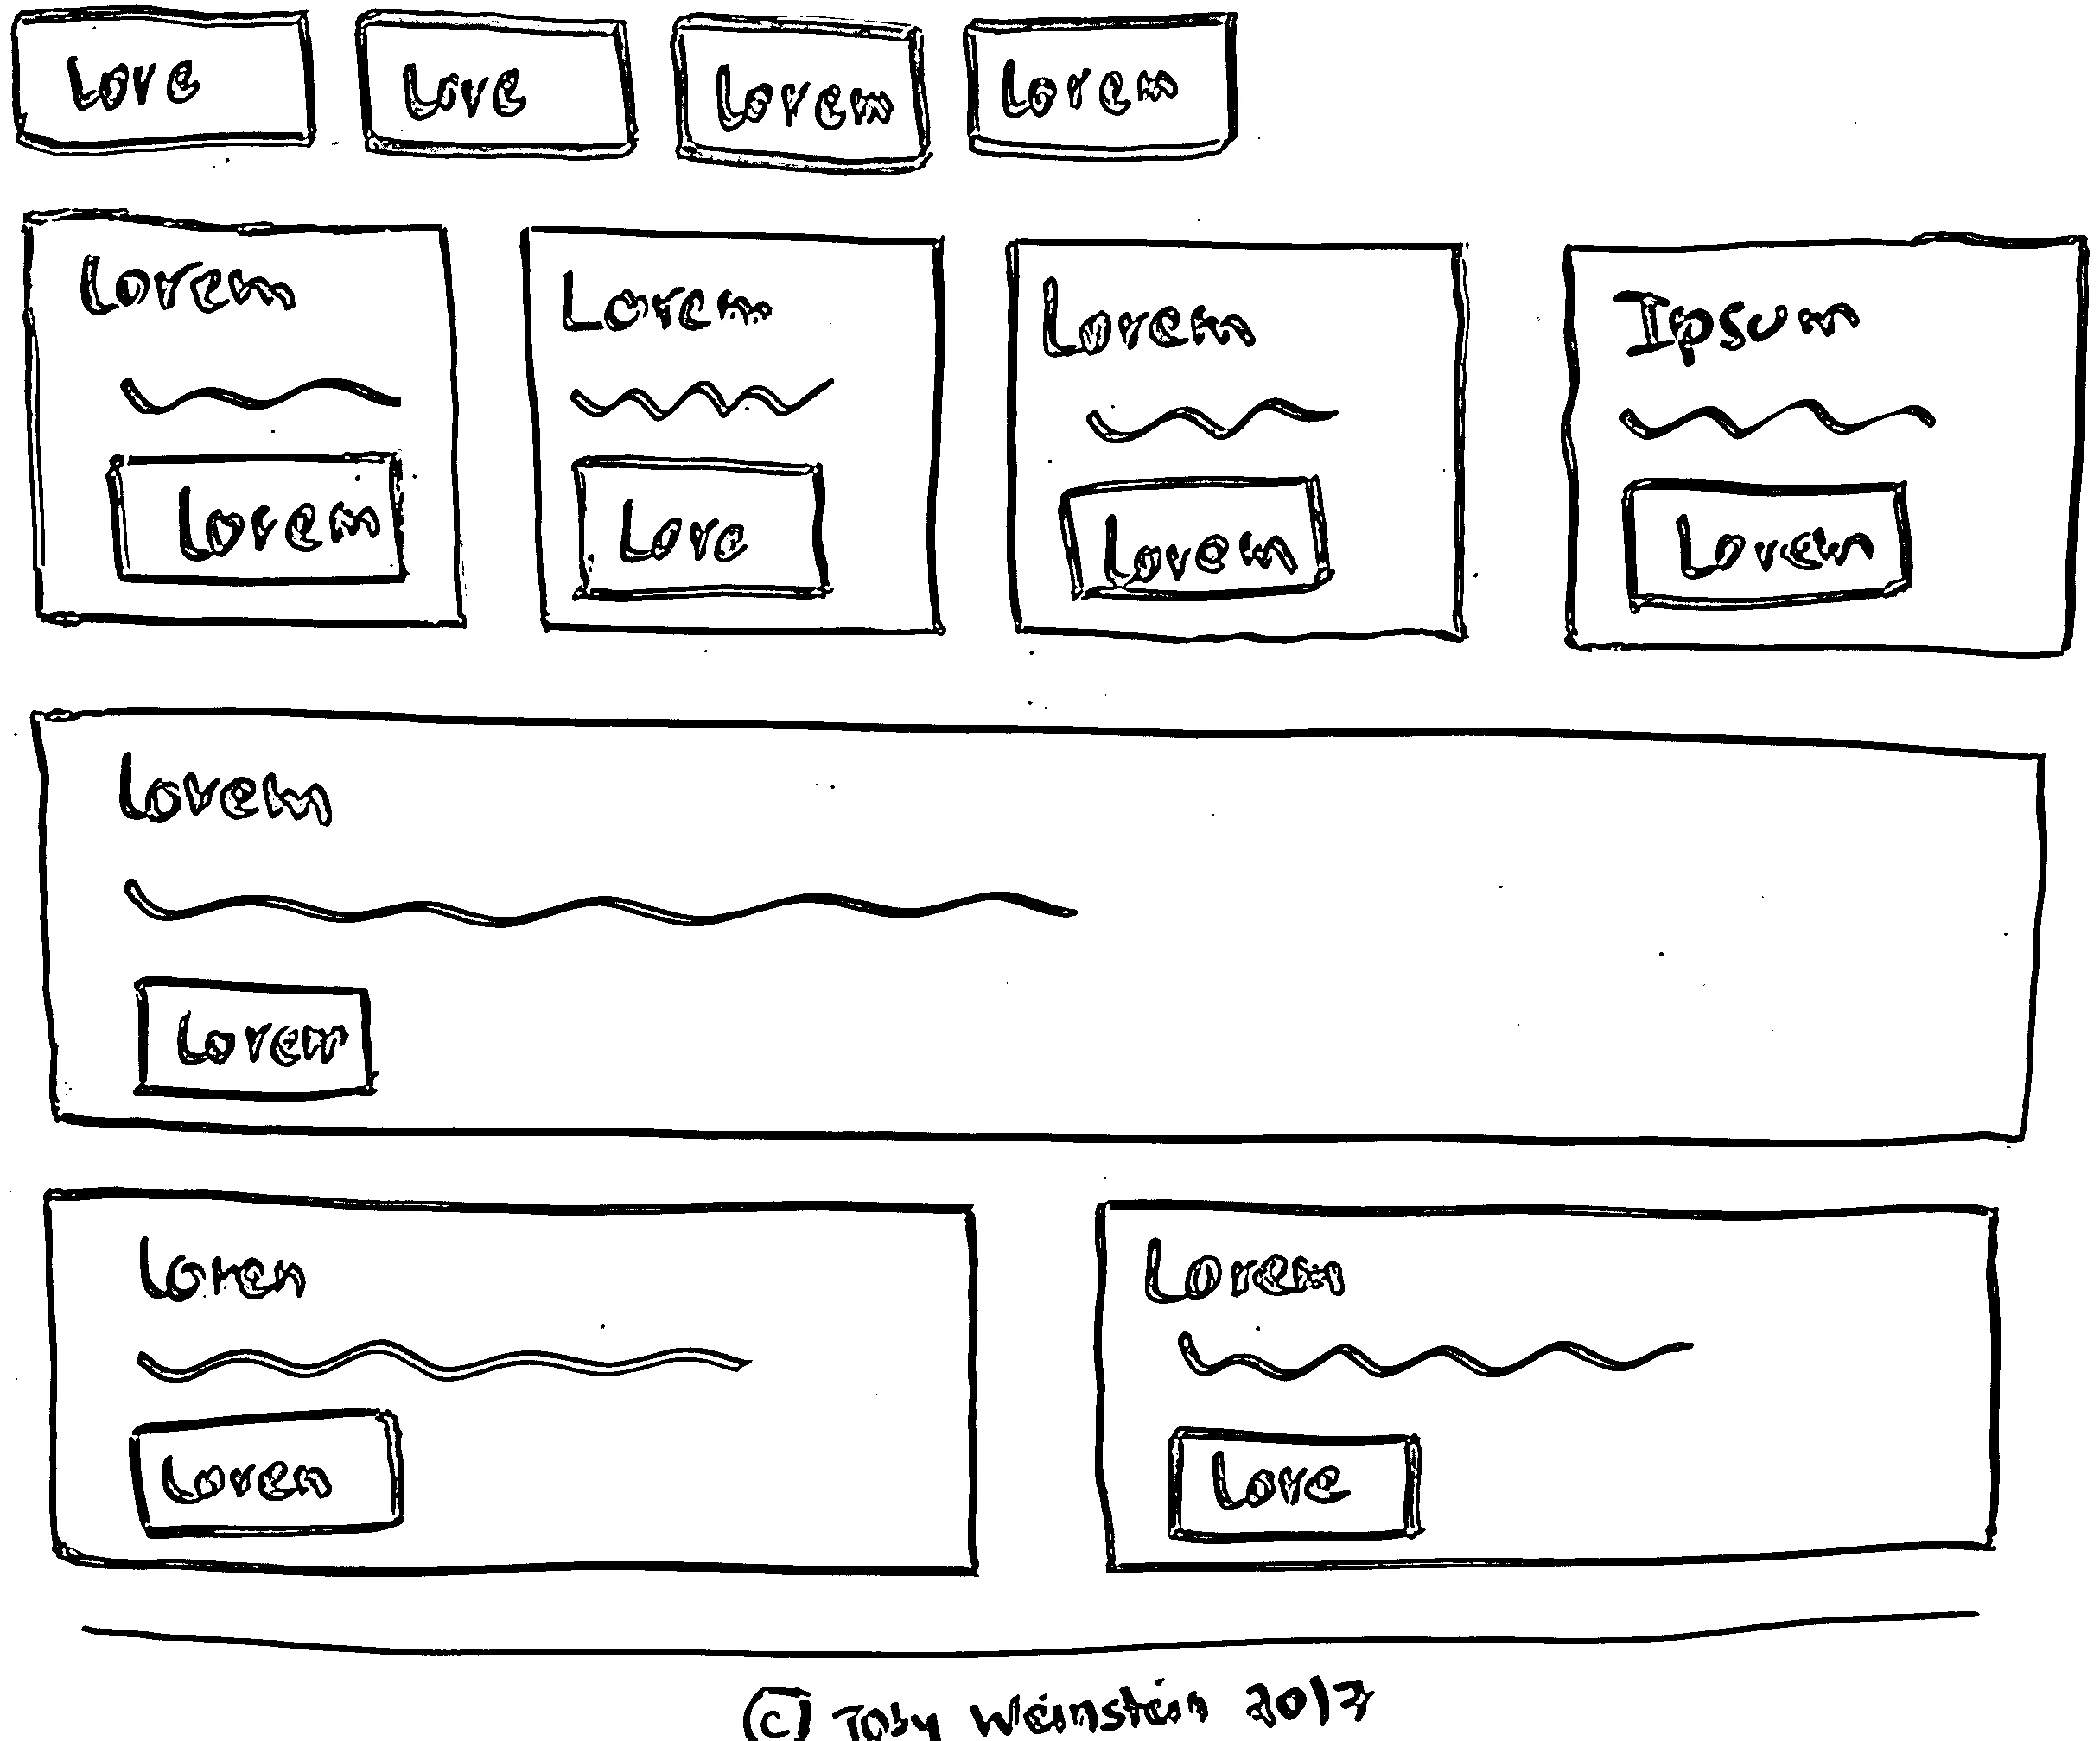 Lore Lore Lorem Lorem
Lorem Lorem Lorem Ipsum
Lorem Lore Lorem Lorem
Lorem
Lorem
Loren Lorem
Loren Lore
© Toby Weinstein 2017